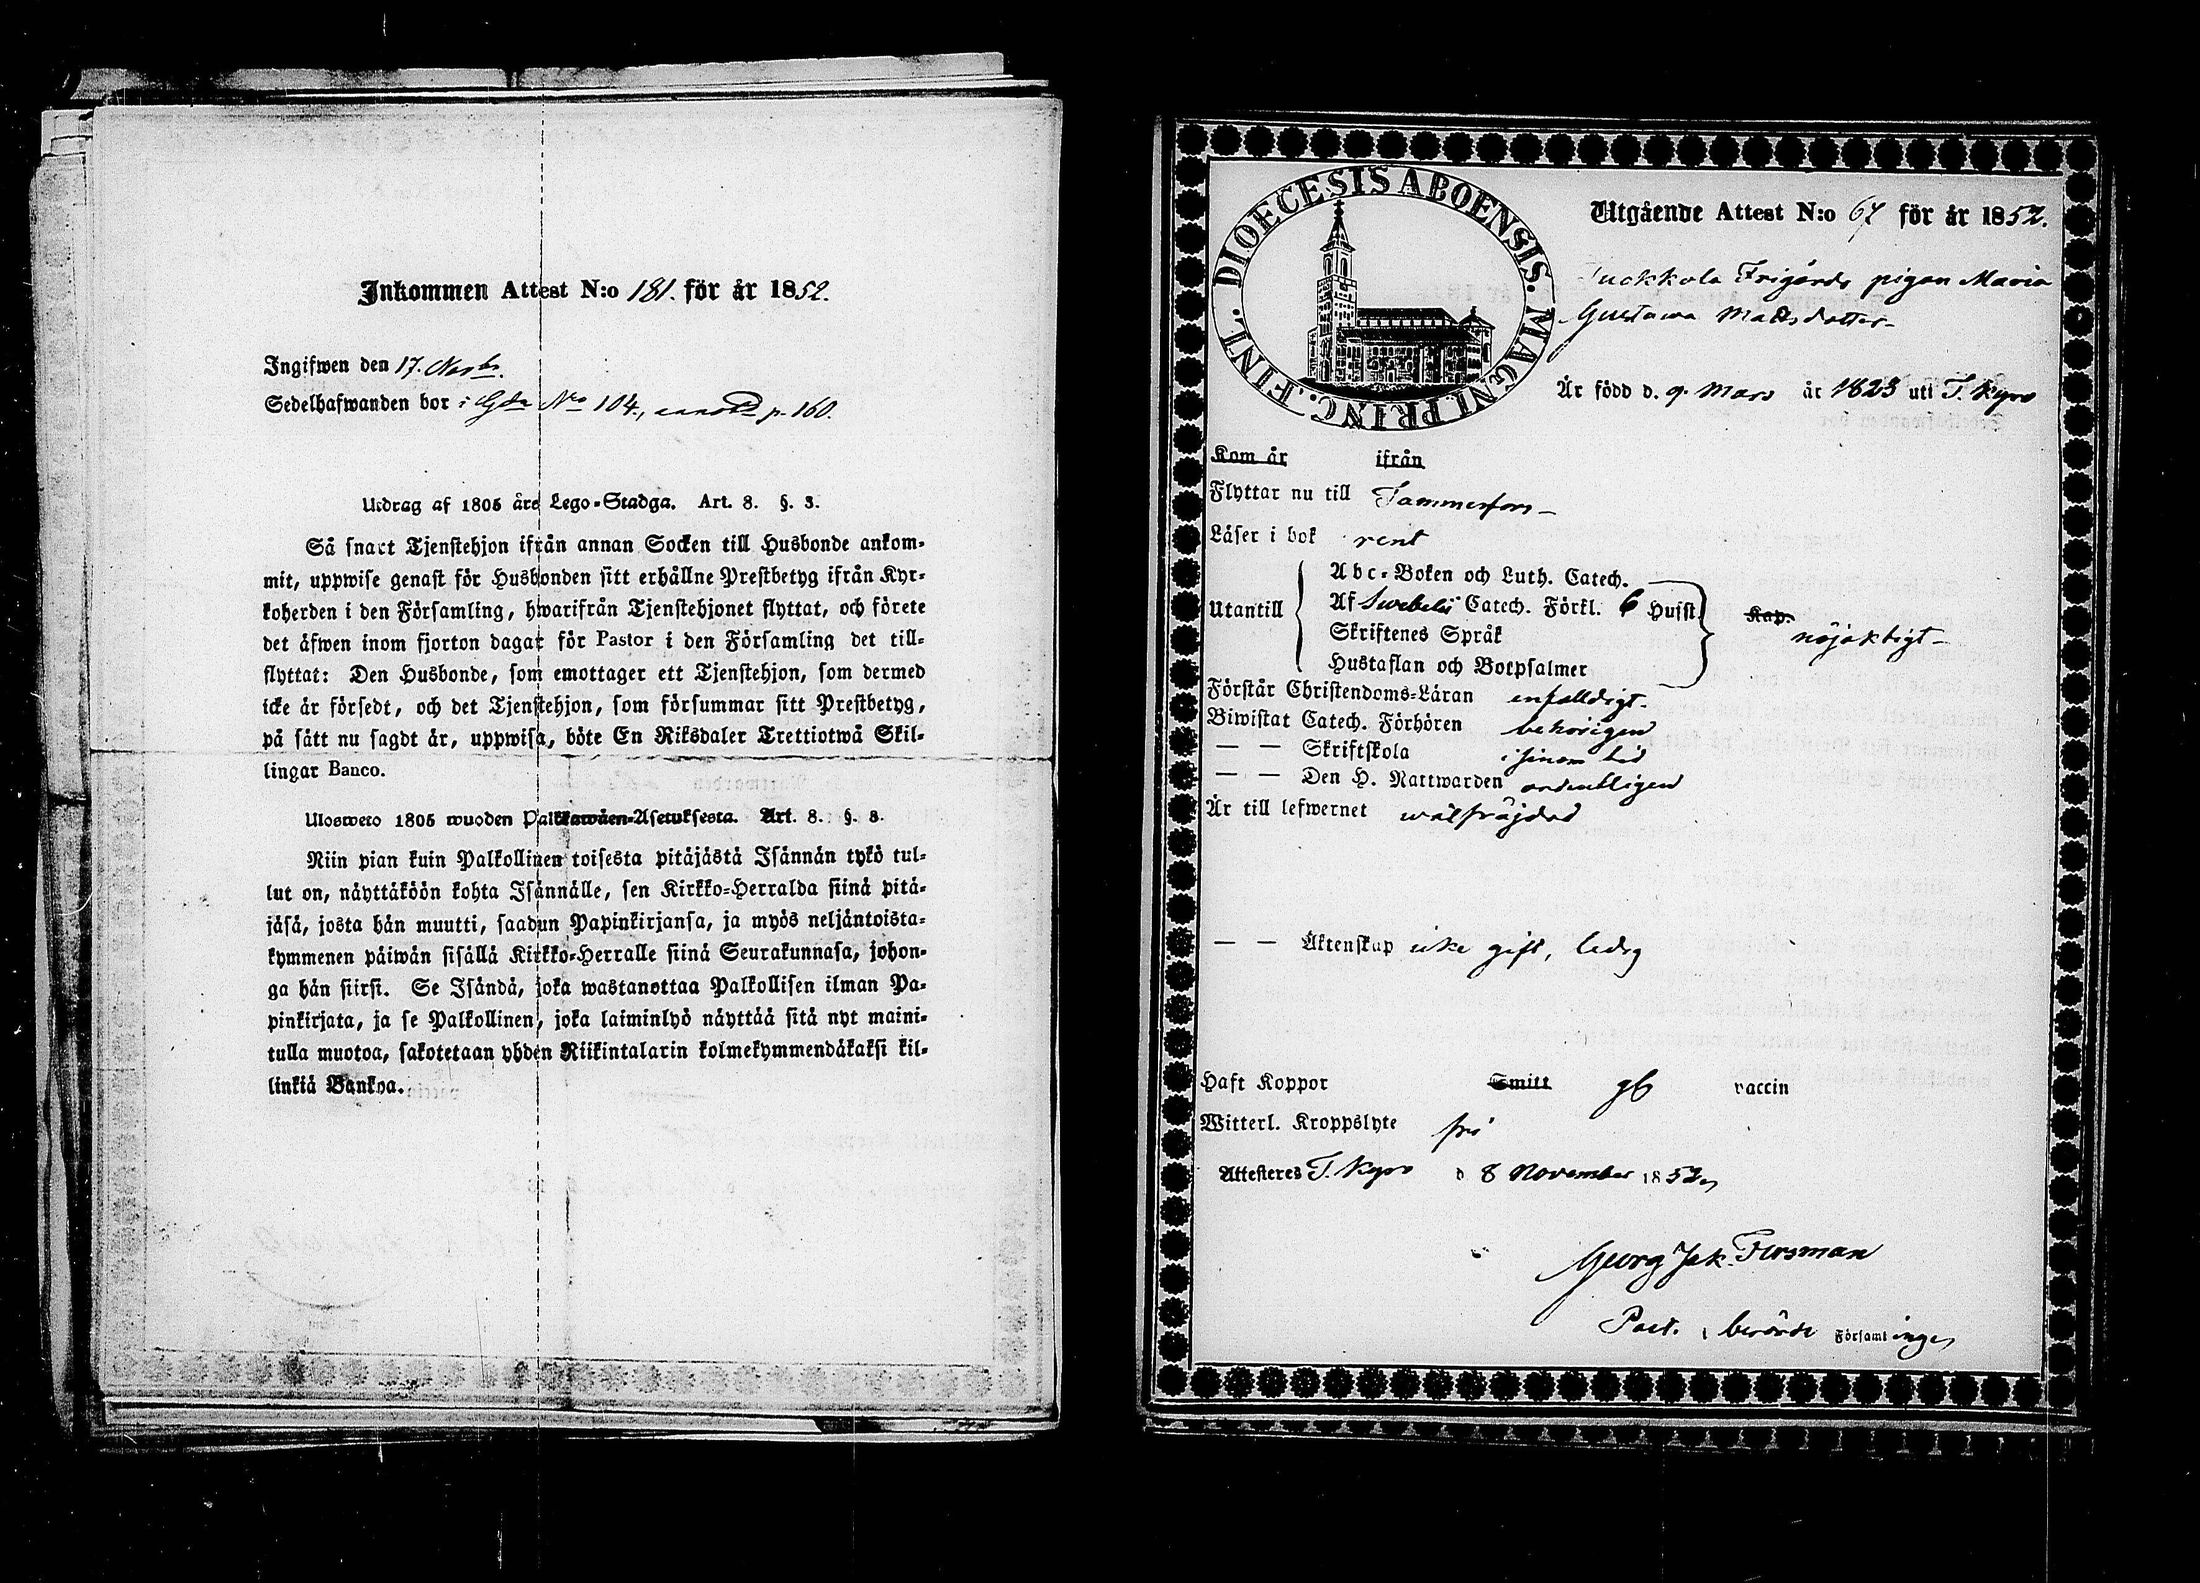 Inkommen Attest N:o 181. för år 1852.
Ingifwen den 17. Novbr.
Sedelhafwanden bor i Gdn No 104, annot p. 160.
Utdrag af 1805 års Lego-Stadga. Art. 8. §. 3.
Så snart Tjenstehjon ifrån annan Socken till Husbonde ankom-
mit, uppwise genast för Husbonden sitt erhållne Prestbetyg ifrån Kyr-
koherden i den Församling, hwarifrån Tjenstehjonet flyttat, och förete
det äfwen inom fjorton dagar för Pastor i den Församling det till-
flyttat: Den Husbonde, som emottager ett Tjenstehjon, som dermed
icke är försedt, och det Tjenstehjon, som försummar sitt Prestbetyg,
på sätt nu sagdt är, uppwisa, böte En Riksdaler Trettiotwå Skil-
lingar Banco.
Ulosweto 1805 wuoden Palkkawäen-Asetuksesta. Art. 8. §. 3.
Niin pian kuin Palkollinen toisesta pitäjästä Isännän tykö tul-
lut on, näyttäköön kohta Isännälle, sen Kirkko-Herralda siinä pitä-
jäsä, josta hän muutti, saadun Papinkirjansa, ja myös neljäntoista-
kymmenen päiwän sisällä Kirkko-Herralle siinä Seurakunnasa, johon-
ga hän siirsi. Se Isändä, joka wastanottaa Palkollisen ilman Pa-
pinkirjata, ja se Palkollinen, joka laiminlyö näyttää sitä nyt maini-
tulla muotoa, sakotetaan yhden Riikintalarin kolmekymmendäkaksi kil-
linkiä Bankoa.
DIOECESIS ABOENSIS. MAGNI PRINC. FINL.
Utgående Attest N:o 67 för år 1852.
Juckkola Frigårds pigan Maria
Gustawa Mattsdotter
Är född d. 9. Mars år 1823 uti T. Kyro
Kom år ifrån
Flyttar nu till Tammerfors
Läser i bok rent
Utantill
Abc-Boken och Luth. Catech.
Af Swebelii Catech. Förkl. 6 Husst. Kap.
Skriftenes Språk
nöjaktigt
Hustaflan och Botpsalmer
Förstår Christendoms-Läran enfaldigt.
Biwistat Catech. Förhören behörigen
— — Skriftskola i sinom tid
— — Den H. Nattwarden ordentligen
Är till lefwernet wälfräjdad
— — Äktenskap icke gift, ledig
Haft Koppor Smitt gb vaccin
Witterl. Kroppslyte fri
Attesteres T. Kyro d 8 November 1852,
Georg Jak. Forsman
Past. i berörde Församlingen